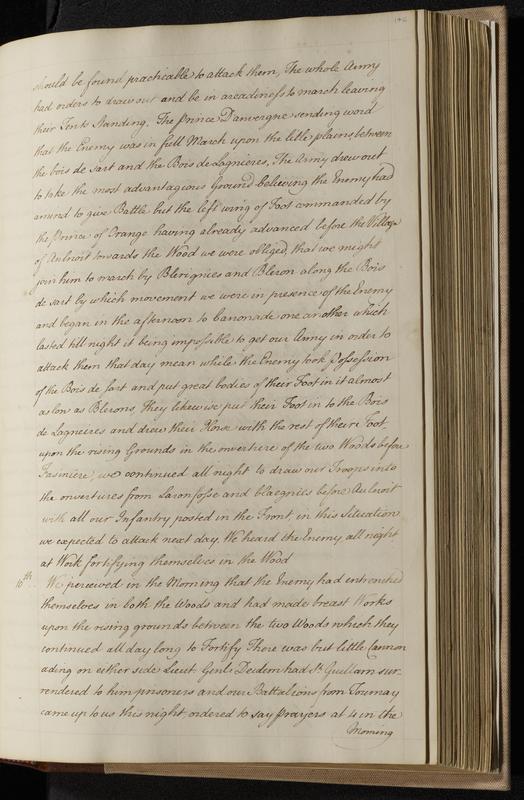 should be found practicable to attack them, The whole Army
had orders to draw out and be in areadiness to march leaving
their Tents standing. The Prince Danvergne sending word
that the Enemy was in full March upon the litle plains between
the bois de sart and the Bois de Lagnieres, The Army drew out
to take the most advantagious Ground believing the Enemy had
amind to give Battle but the left wing of Foot commanded by
the Prince of Orange having already advanced before the Village
of Aulnoit towards the Wood we were obliged, that we might
join him to march by Blerignies and Bleron along the Bois
de sart by which movement we were in presence of the Enemy
and began in the afternoon to Canonade one another which
lasted till night it being impossible to get our Army in order to
attack them that day mean while the Enemy took Possession
of the Bois de Sart and put great bodies of their Foot in it almost
as low as Blerons, They likewise put their Foot in to the Bois
de Lagneries and drew their Horse with the rest of their Foot
upon the rising Grounds in the onverture of the two Woods before
we continued all night to draw our Troops into
the onvertures from Saronfosse and blaegnies before Aulnoit
with all our Infantry posted in the Front, in this Situation
we expected to attack next day. We heard the Enemy all night
at Work fortifying themselves in the Wood
10th. We perceived in the Morning that the Enemy had entrenched
themselves in both the Woods and had made breast Works
upon the rising grounds between the two Woods which they
continued all day long to Fortify There was but little Cannon
ading on either side Lieut Genl: Dedem had St. Guillain sur-
rendered to him prisoners and our Battalions from Tournay
came up to us this night, ordered to say prayers at 4 in the
Morning